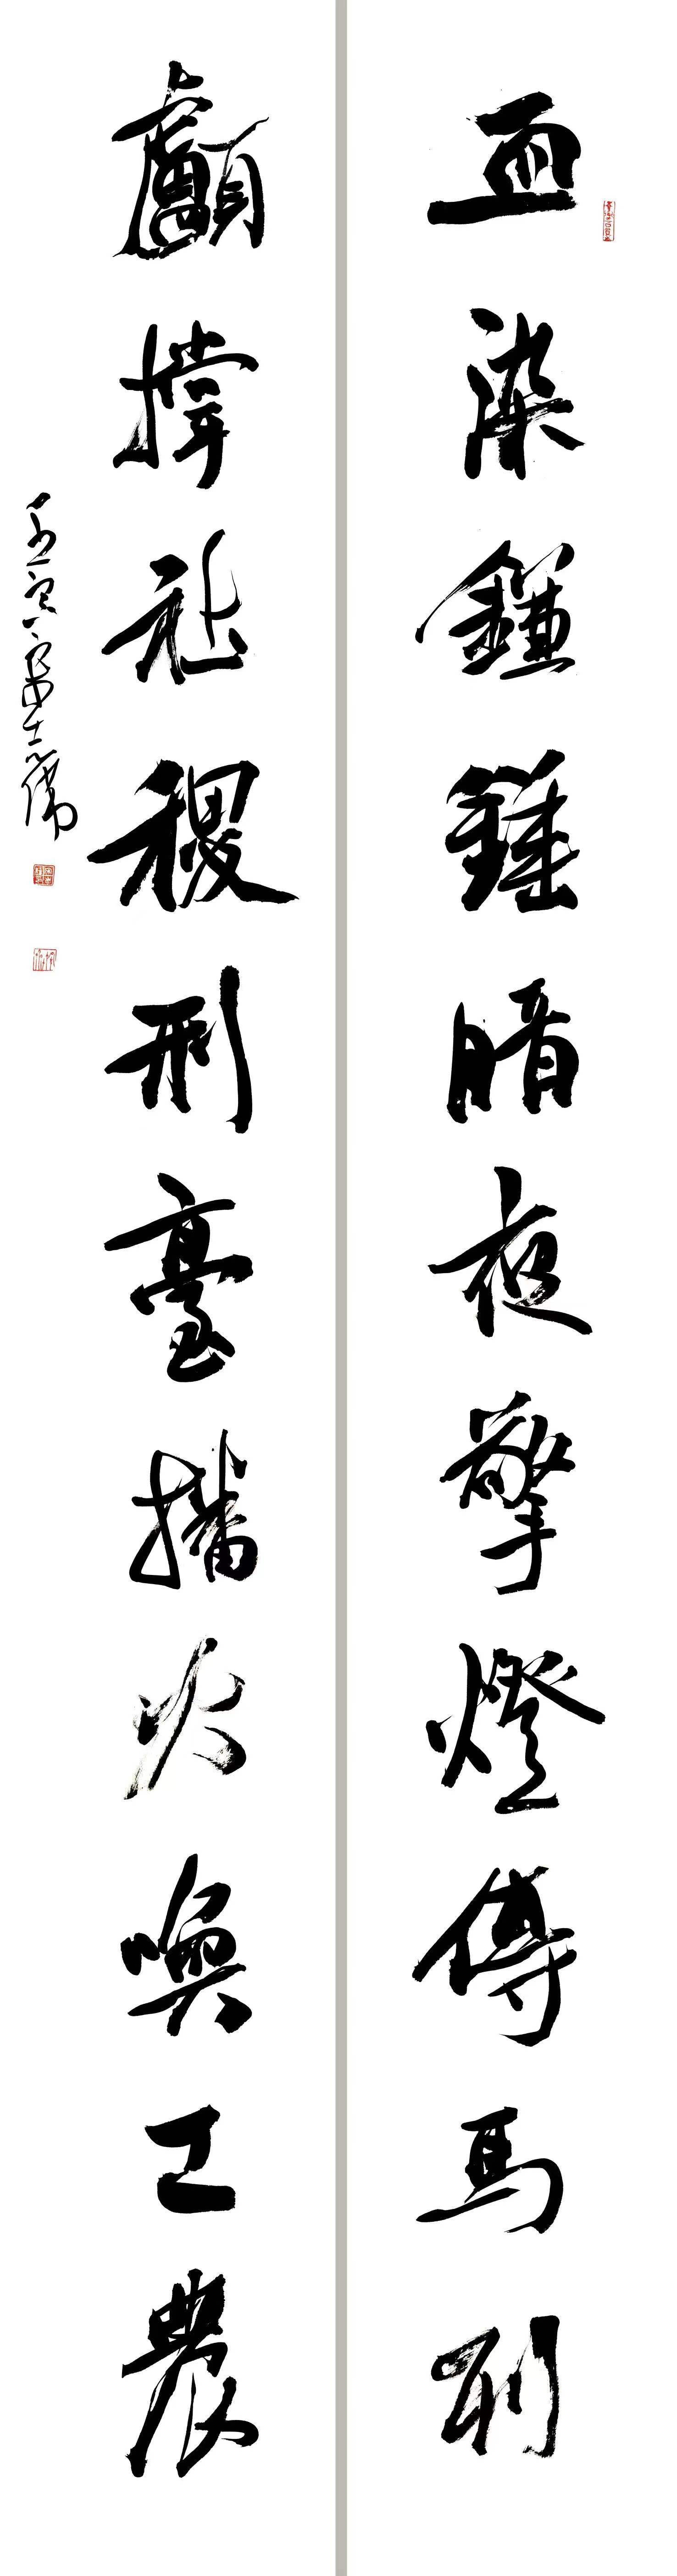 血染鐮錘暗夜擎燈傳馬列
顱撐社稷刑臺播火喚工農
壬寅